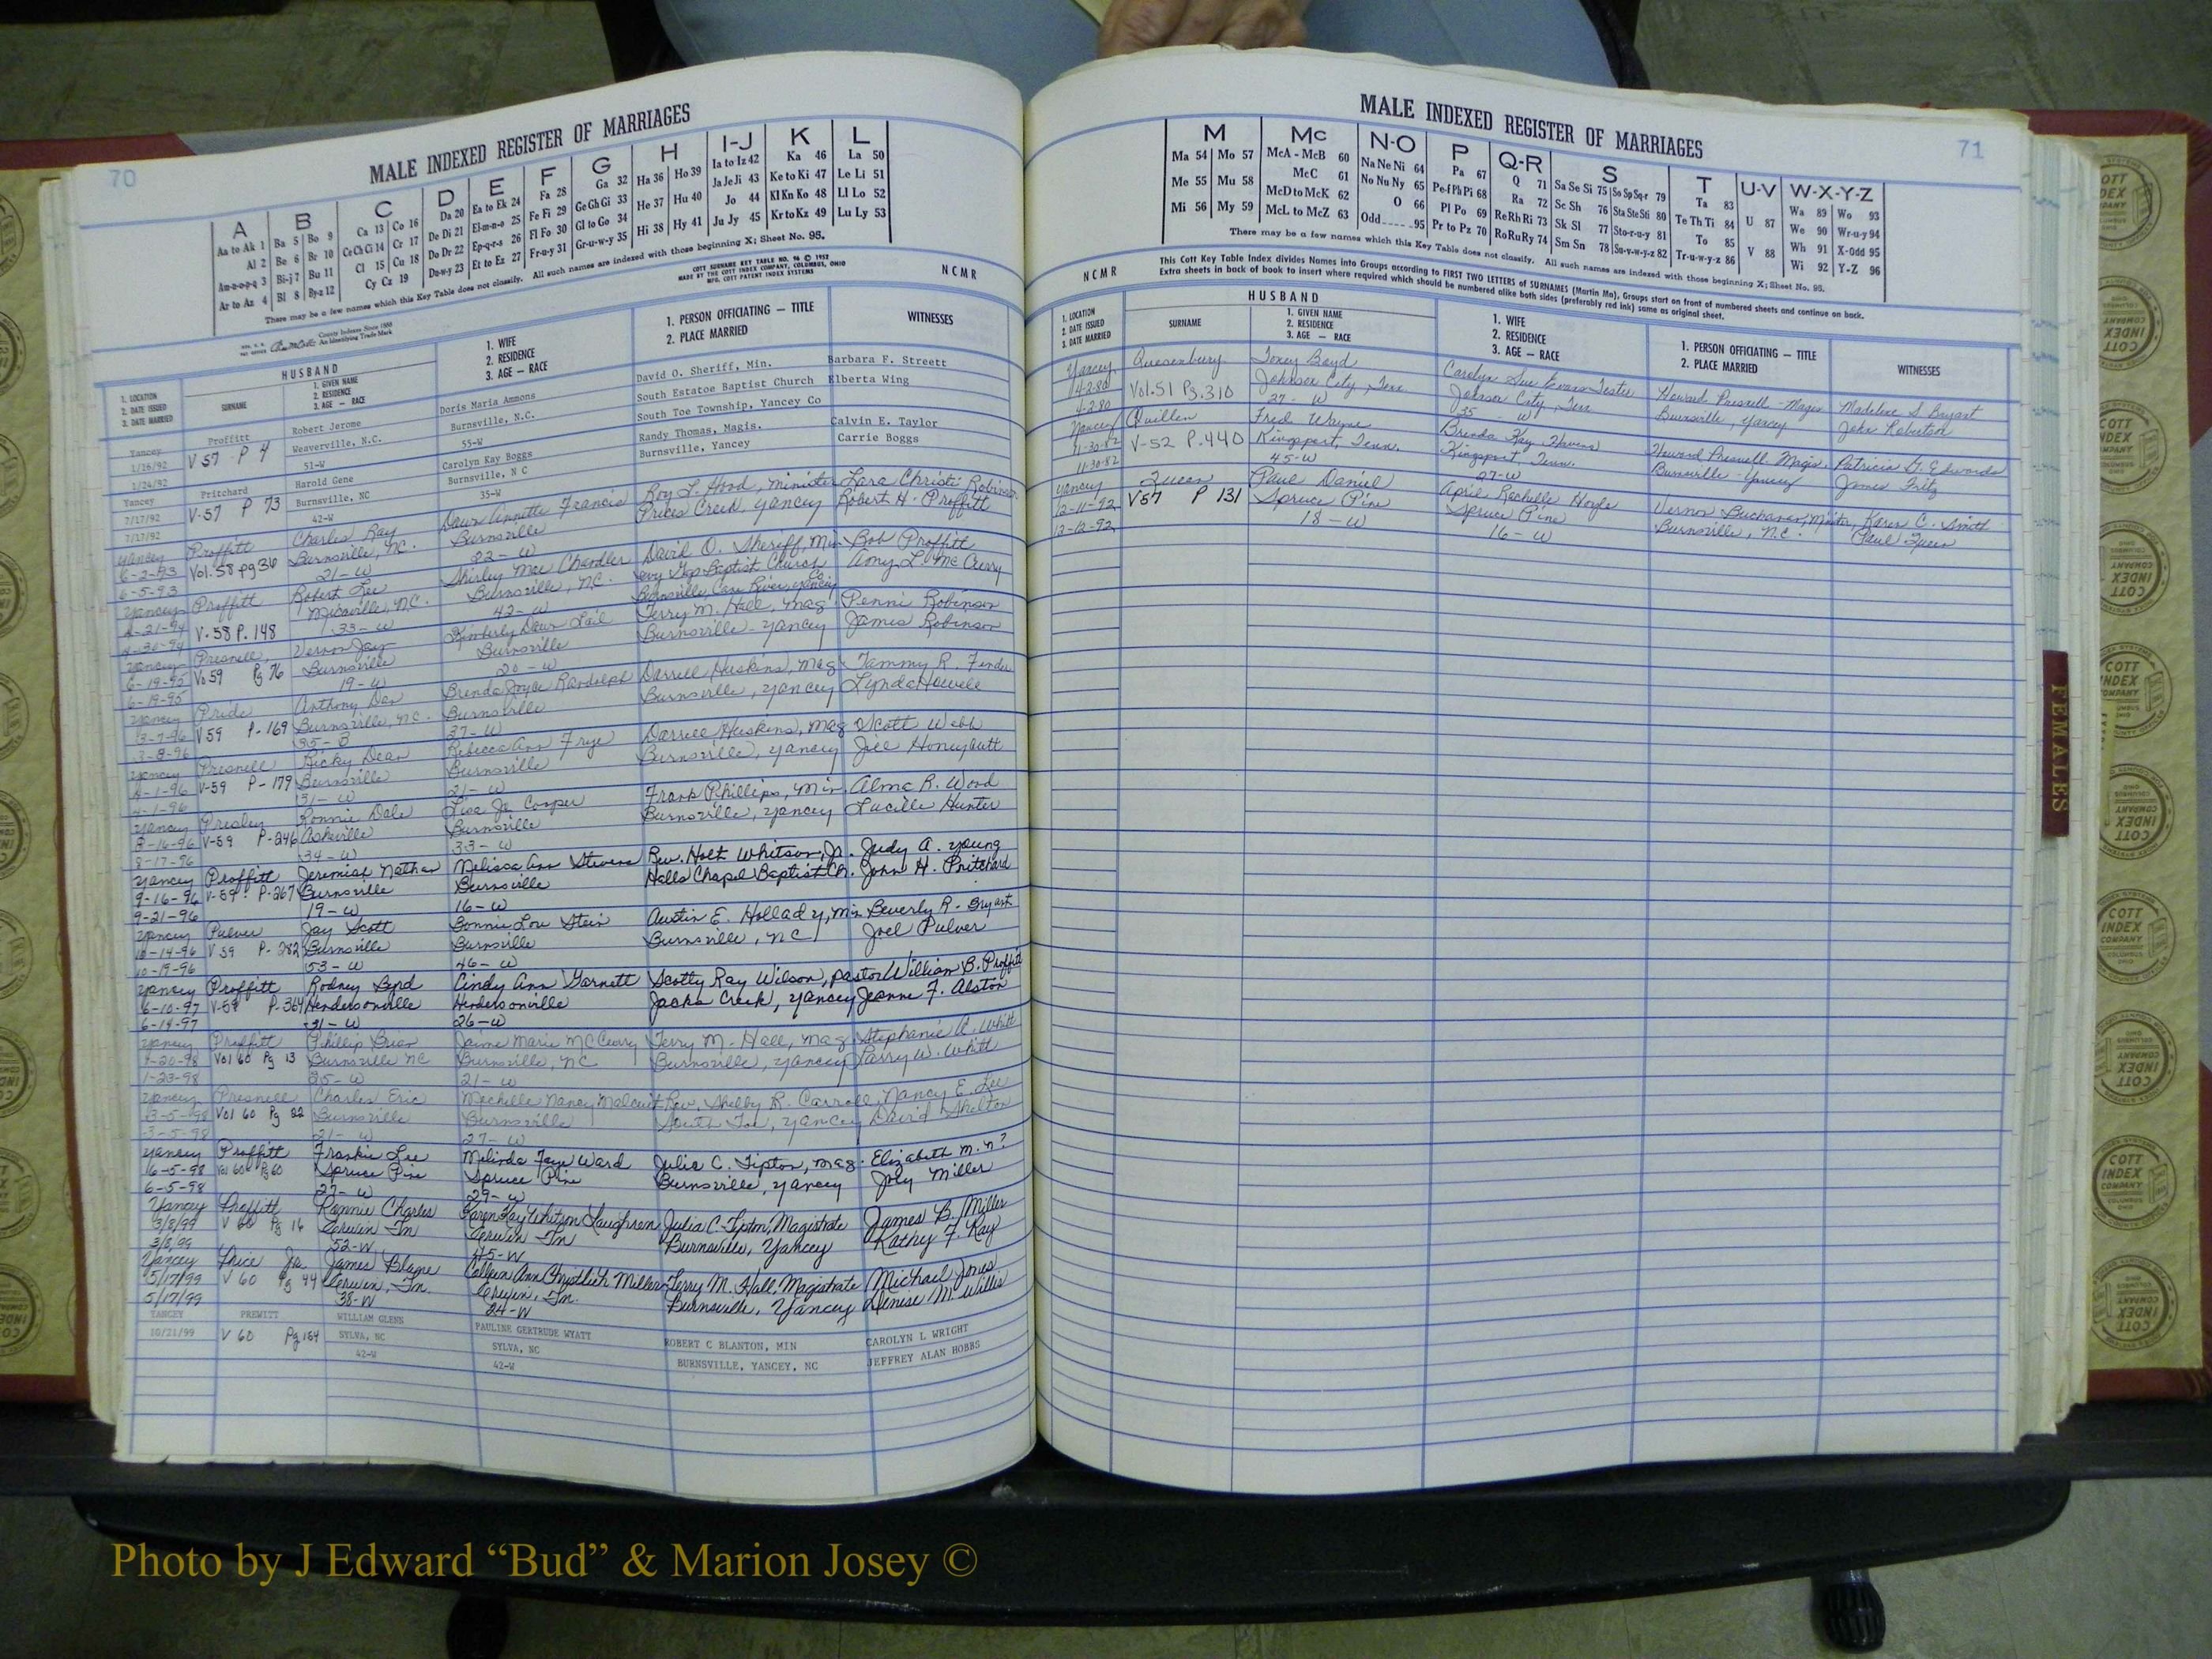 70
MALE INDEXED REGISTER OF MARRIAGES
A
Aa to Ak 1
Al 2
Am-n-o-p-q 3
Ar to Az 4
B
Ba 5 Bo 9
Be 6 Br 10
Bi-j 7 Bu 11
Bl 8 By-z 12
C
Ca 13 Co 16
Ce Ch Ci 14 Cr 17
Cl 15 Cu 18
Cy Cz 19
D
Da 20
De Di 21
Do Dr 22
Du-w-y 23
E
Ea to Ek 24
El-m-n-o 25
Ep-q-r-s 26
Et to Ez 27
F
Fa 28
Fe Fi 29
Fl Fo 30
Fr-u-y 31
G
Ga 32
Ge Gh Gi 33
Gl to Go 34
Gr-u-w-y 35
H
Ha 36 Ho 39
He 37 Hu 40
Hi 38 Hy 41
I-J
Ia to Iz 42
Ja Je Ji 43
Jo 44
Ju Jy 45
K
Ka 46
Ke to Ki 47
Kl Kn Ko 48
Kr to Kz 49
L
La 50
Le Li 51
Ll Lo 52
Lu Ly 53
There may be a few names which this Key Table does not classify. All such names are indexed with those beginning X; Sheet No. 95.
COTT SURNAME KEY TABLE NO. 96 © 1957
MADE BY THE COTT INDEX COMPANY, COLUMBUS, OHIO
MFG. COTT PATENT INDEX SYSTEMS
NCMR
County Indexes Since 1888
An Identifying Trade Mark
1. LOCATION
2. DATE ISSUED
3. DATE MARRIED
HUSBAND
SURNAME
1. GIVEN NAME
2. RESIDENCE
3. AGE — RACE
1. WIFE
2. RESIDENCE
3. AGE — RACE
1. PERSON OFFICIATING — TITLE
2. PLACE MARRIED
WITNESSES
Yancey Proffitt Robert Jerome Doris Maria Ammons David O. Sheriff, Min. Barbara F. Streett
1/16/92 V 57 P 4 Weaverville, N.C. Burnsville, N.C. South Estatoe Baptist Church Elberta Wing
1/24/92 51-W 55-W South Toe Township, Yancey Co
Yancey Pritchard Harold Gene Carolyn Kay Boggs Randy Thomas, Magis. Calvin E. Taylor
7/17/92 V-57 P 73 Burnsville, NC Burnsville, N C Burnsville, Yancey Carrie Boggs
7/17/92 42-W 35-W
Yancey Proffitt Charles Ray Dawn Annette Francis Roy L. Hood, minister Lara Christi Robinson
6-2-93 Vol. 58 pg 36 Burnsville, NC. Burnsville Prices Creek, Yancey Robert H. Proffitt
6-5-93 21-W 22-W
Yancey Proffitt Robert Lee Shirley Mae Chandler David O. Sheriff, Min Bob Proffitt
4-21-94 V-58 P. 148 Burnsville, N.C. Gap Baptist Church Amy L. McCurry
4-30-94 33-W 42-W Burnsville, Cane River, Yancey Co
Yancey Presnell Vernon Jay Kimberly Dawn Lail Terry M. Hall, mag. Penni Robinson
6-19-95 Vo 59 Pg 76 Burnsville Burnsville Burnsville-Yancey James Robinson
6-19-95 19-W 20-W
Yancey Pride Anthony Dan Brenda Joyce Randolph Darrell Huskins, Mag. Tammy R. Fender
3-7-96 V 59 P-169 Burnsville, NC. Burnsville Burnsville, Yancey Lynda Howell
3-8-96 35-B 37-W
Yancey Presnell Ricky Dean Rebecca Ann Frye Darrell Huskins, Mag Scott Webb
4-1-96 V-59 P-179 Burnsville Burnsville Burnsville, Yancey Jill Honeycutt
4-1-96 31-W 21-W
Yancey Presley Ronnie Dale Lisa Jo Cooper Frank Phillips, Min. Alma R. Wood
8-16-96 V-59 P-246 Asheville Burnsville Burnsville, Yancey Lucille Hunter
8-17-96 34-W 33-W
Yancey Proffitt Jeremiah Nathan Melissa Ann Stevens Rev. Holt Whitson, Jr. Judy A. Young
9-16-96 V-59 P-267 Burnsville Burnsville Halls Chapel Baptist Ch. John H. Pritchard
9-21-96 19-W 16-W
Yancey Pulver Jay Scott Bonnie Lou Stein Austin E. Hollady, Min Beverly R. Bryant
10-14-96 V 59 P-282 Burnsville Burnsville Burnsville, NC Joel Pulver
10-19-96 53-W 46-W
Yancey Proffitt Rodney Byrd Cindy Ann Garnett Scotty Ray Wilson, Pastor William B. Proffitt
6-10-97 V-59 P-364 Hendersonville Hendersonville Jacks Creek, Yancey Jeanne F. Alston
6-14-97 31-W 26-W
Yancey Proffitt Phillip Brian Jaime Marie McCurry Terry M. Hall, Mag. Stephanie A. Whitt
1-20-98 Vol 60 Pg 13 Burnsville NC Burnsville, NC Burnsville, Yancey Larry W. Whitt
1-23-98 25-W 21-W
Yancey Presnell Charles Eric Mechelle Nancy Rev. Shelby R. Carroll, Nancy E. Lee
3-5-98 Vol 60 Pg 22 Burnsville Burnsville South Toe, Yancey David Shelton
3-5-98 21-W 27-W
Yancey Proffitt Frankie Lee Melinda Faye Ward Julia C. Tipton, Mag. Elizabeth M. n?
6-5-98 Vol 60 Pg 60 Spruce Pine Spruce Pine Burnsville, Yancey Joly Miller
6-5-98 27-W 29-W
Yancey Proffitt Ronnie Charles Karen Kay Whitson Laughren Julia C. Tipton, Magistrate James B. Miller
3/8/99 V 60 Pg 16 Erwin Tn Erwin Tn Burnsville, Yancey Kathy F. Ray
3/8/99 52-W 45-W
Yancey Price Jr. James Blaine Colleen Ann Miller Terry M. Hall, Magistrate Michael Jones
5/17/99 V 60 Pg 44 Erwin, Tn. Erwin, Tn. Burnsville, Yancey Denise M. Willis
5/17/99 38-W 24-W
YANCEY PREWITT WILLIAM GLENN PAULINE GERTRUDE WYATT ROBERT C BLANTON, MIN CAROLYN L WRIGHT
10/21/99 V 60 Pg 154 SYLVA, NC SYLVA, NC BURNSVILLE, YANCEY, NC JEFFREY ALAN HOBBS
42-W 42-W
71
MALE INDEXED REGISTER OF MARRIAGES
M
Ma 54 Mo 57
Me 55 Mu 58
Mi 56 My 59
Mc
McA - McB 60
McC 61
McD to McK 62
McL to McZ 63
N-O
Na Ne Ni 64
No Nu Ny 65
O 66
Odd 95
P
Pa 67
Pe-f Ph Pi 68
Pl Po 69
Pr to Pz 70
Q-R
Q 71
Ra 72
Re Rh Ri 73
Ro Ru Ry 74
S
Sa Se Si 75 So Sp Sq-r 79
Sc Sh 76 Sta Ste Sti 80
Sk Sl 77 Sto-r-u-y 81
Sm Sn 78 Su-v-w-y-z 82
T
Ta 83
Te Th Ti 84
To 85
Tr-u-w-y-z 86
U-V
U 87
V 88
W-X-Y-Z
Wa 89 Wo 93
We 90 Wr-u-y 94
Wh 91 X-Odd 95
Wi 92 Y-Z 96
There may be a few names which this Key Table does not classify. All such names are indexed with those beginning X; Sheet No. 95.
NCMR
This Cott Key Table Index divides Names into Groups according to FIRST TWO LETTERS of SURNAMES (Martin Ma), Groups start on front of numbered sheets and continue on back.
Extra sheets in back of book to insert where required which should be numbered alike both sides (preferably red ink) same as original sheet.
1. LOCATION
2. DATE ISSUED
3. DATE MARRIED
HUSBAND
SURNAME
1. GIVEN NAME
2. RESIDENCE
3. AGE — RACE
1. WIFE
2. RESIDENCE
3. AGE — RACE
1. PERSON OFFICIATING — TITLE
2. PLACE MARRIED
WITNESSES
Yancey Quesenbury Toney Boyd Carolyn Sue Evans Tester Howard Presnell-Magis Madeline S. Bryant
4-2-80 Vol. 51 Pg. 310 Johnson City, Tenn Johnson City, Tenn Burnsville, Yancey John Roberton
4-2-80 27-W 35 W
Yancey Quillen Fred Wayne Brenda Kay Havens Howard Presnell-Magis. Patricia G. Edwards
11-30-82 V-52 P. 440 Kingsport, Tenn. Kingsport, Tenn. Burnsville-Yancey James Fritz
11-30-82 45-W 27-W
Yancey Queen Paul Daniel April Rochelle Hoyle Vernon Buchanan, Minister, Karen C. Smith
12-11-92 V57 P 131 Spruce Pine Spruce Pine Burnsville, N.C. Paul Queen
12-12-92 18-W 16-W
FEMALES
COTT
INDEX
COMPANY
COLUMBUS
OHIO
Photo by J Edward “Bud” & Marion Josey ©